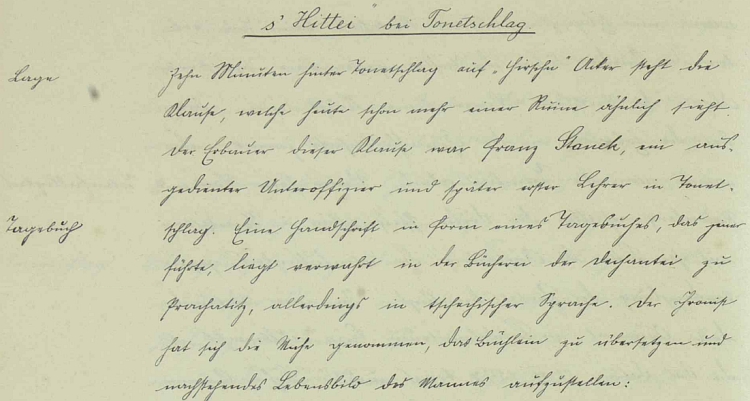 s' Hittei bei Tonetschlag
Lage
Zehn Minuten hinter Tonetschlag auf „Hirschn" Acker steht die
Klause, welche heute schon mehr einer Ruine ähnlich sieht.
Der Erbauer dieser Klause war Franz Stanek, ein aus-
gedienter Unteroffizier und später erster Lehrer in Tonet-
Tagebuch
schlag. Eine Handschrift in Form eines Tagebuches, das jener
führte, liegt verwahrt in der Bücherei der Dechantei zu
Prachatitz, allerdings in tschechischer Sprache. Der Chronist
hat sich die Mühe genommen, das Büchlein zu übersetzen und
nachstehendes Lebensbild des Mannes aufzustellen: